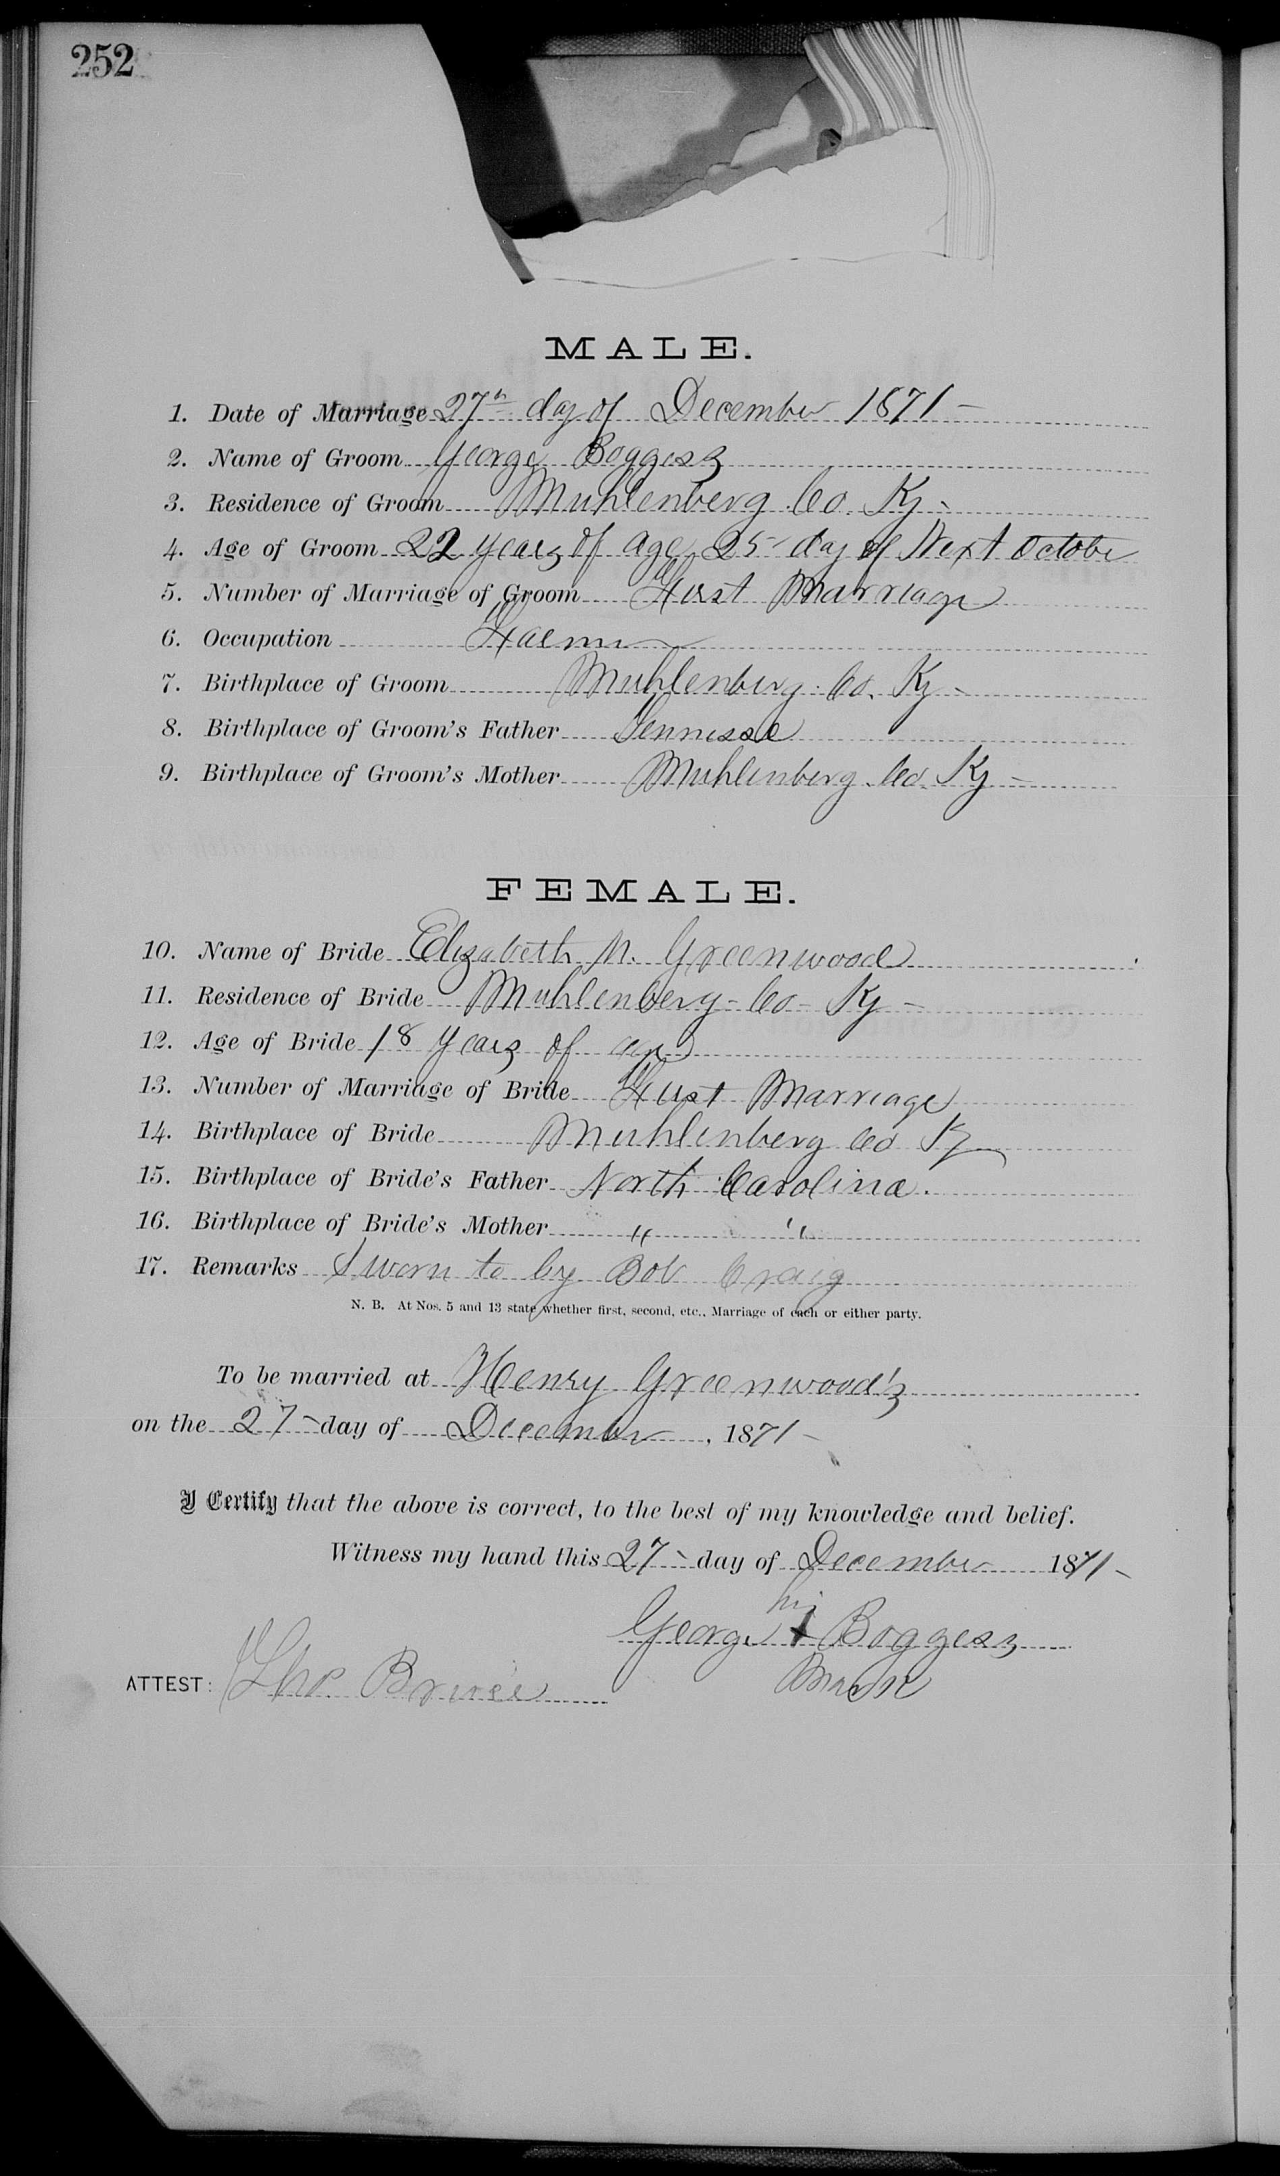 252
MALE.
1. Date of Marriage 27th day of December 1871 -
2. Name of Groom George Boggess
3. Residence of Groom Muhlenberg Co. Ky -
4. Age of Groom 22 years of age 25 - day of Next October
5. Number of Marriage of Groom First Marriage
6. Occupation Farmer
7. Birthplace of Groom Muhlenberg Co. Ky -
8. Birthplace of Groom's Father Tennessee
9. Birthplace of Groom's Mother Muhlenberg Co. Ky -
FEMALE.
10. Name of Bride Elizabeth M. Greenwood
11. Residence of Bride Muhlenberg - Co - Ky -
12. Age of Bride 18 years of age
13. Number of Marriage of Bride First Marriage
14. Birthplace of Bride Muhlenberg Co Ky
15. Birthplace of Bride's Father North Carolina.
16. Birthplace of Bride's Mother " "
17. Remarks Sworn to by Bob Craig
N. B. At Nos. 5 and 13 state whether first, second, etc., Marriage of each or either party.
To be married at Henry Greenwood's
on the 27 - day of December, 1871 -
I Certify that the above is correct, to the best of my knowledge and belief.
Witness my hand this 27 - day of December 1871 -
his
George X Boggess
Mark
ATTEST: Tho. Bruce